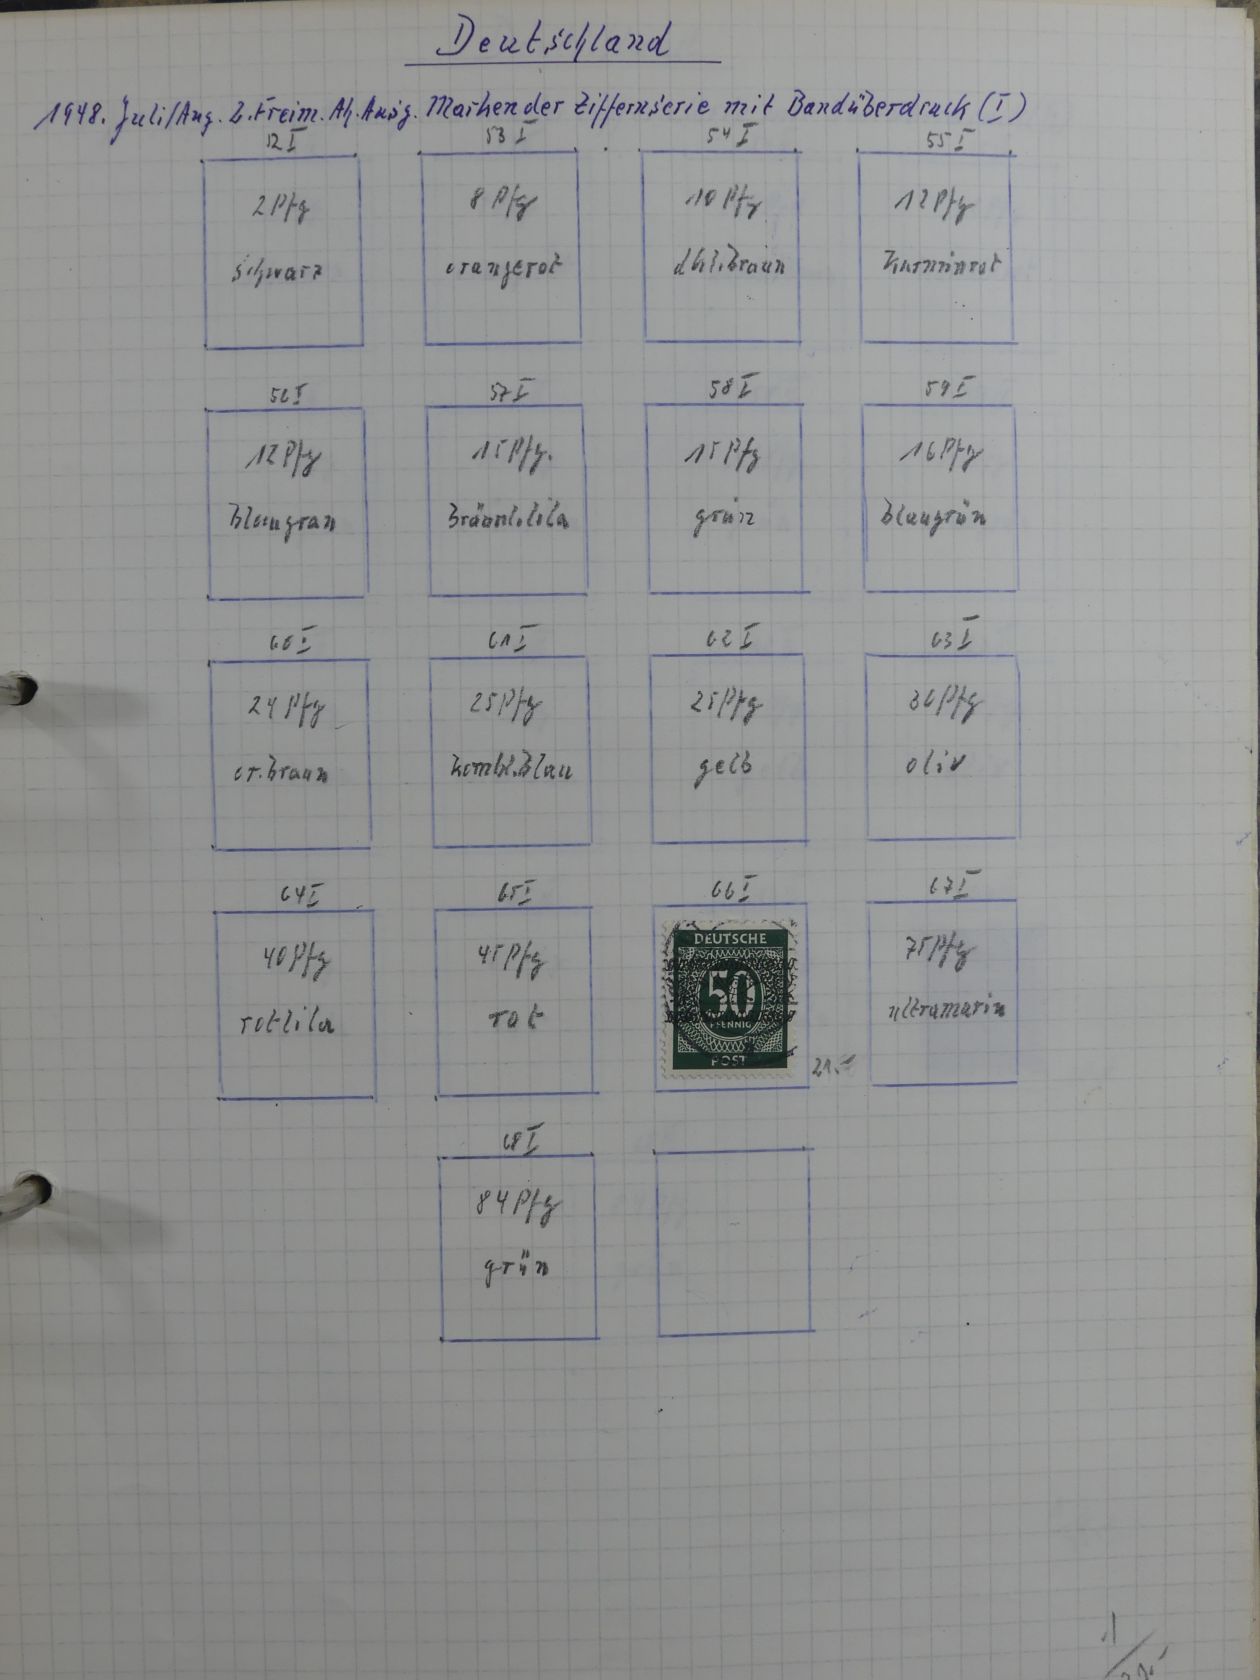 Deutschland
1948. Juli/Aug. 2. Freim. Ah. Ausg. Marken der Ziffernserie mit Bandüberdruck (I)
52 I 53 I 54 I 55 I
2 Pfg 8 Pfg 10 Pfg 12 Pfg
schwarz orangerot dkl.braun karminrot
56 I 57 I 58 I 59 I
12 Pfg 15 Pfg. 15 Pfg 16 Pfg
blaugrau bräunl.lila grün blaugrün
60 I 61 I 62 I 63 I
24 Pfg 25 Pfg 25 Pfg 30 Pfg
or.braun gelb oliv
64 I 65 I 66 I 67 I
40 Pfg 45 Pfg 75 Pfg
rotlila rot ultramarin
DEUTSCHE
50
PFENNIG
POST
21.-
68 I
84 Pfg
grün